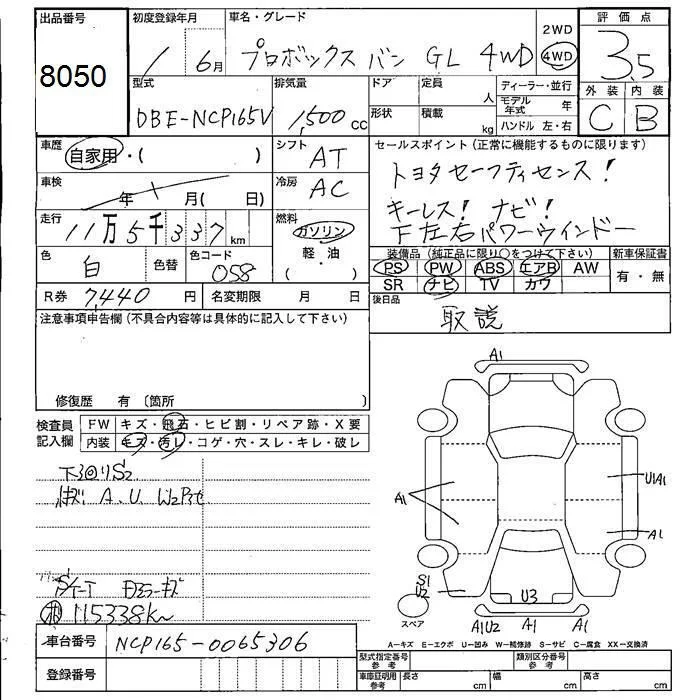 出品番号
8050
初度登録年月
1 6月
車名・グレード
プロボックス バン GL 4WD
2WD
4WD
評価点
3.5
型式
DBE-NCP165V
排気量
1,500 cc
ドア
定員
人
形状
積載
kg
ディーラー・並行
モデル年式 年
ハンドル 左・右
外装 内装
C B
車歴
自家用・( )
シフト
AT
車検
年 月( 日)
冷房
AC
走行
11万5千337 km
燃料
ガソリン
軽・油
( )
色
白
色替
色コード
058
R券 7,440 円
名変期限 月 日
セールスポイント(正常に機能するものに限ります)
トヨタセーフティセンス!
キーレス! ナビ!
下左右パワーウインドー
装備品(純正品に限り○をつけて下さい)
PS PW ABS エアB AW
SR ナビ TV カワ
新車保証書
有・無
後日品
取説
注意事項申告欄(不具合内容等は具体的に記入して下さい)
修復歴 有〔箇所 〕
検査員記入欄
FW キズ・飛石・ヒビ割・リペア跡・X要
内装 キズ・汚レ・コゲ・穴・スレ・キレ・破レ
下回りS2
A.U.
115338km
A1
A1
U1A1
A1
S1
U2
U3
A1U2 A1 A1
スペア
A=キズ E=エクボ U=凹み W=補修跡 S=サビ C=腐食 XX=交換済
車台番号
NCP165-0065306
登録番号
型式指定番号 参考
類別区分番号 参考
車庫証明用 参考
長さ cm
幅 cm
高さ cm